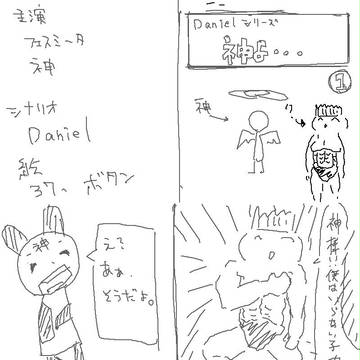 主演
フェスミータ
神
シナリオ
Daniel
絵
ボタン
Danielシリーズ
神よ・・・
①
神
神様!!僕はいらない子
神
あぁ、
そうだよ。